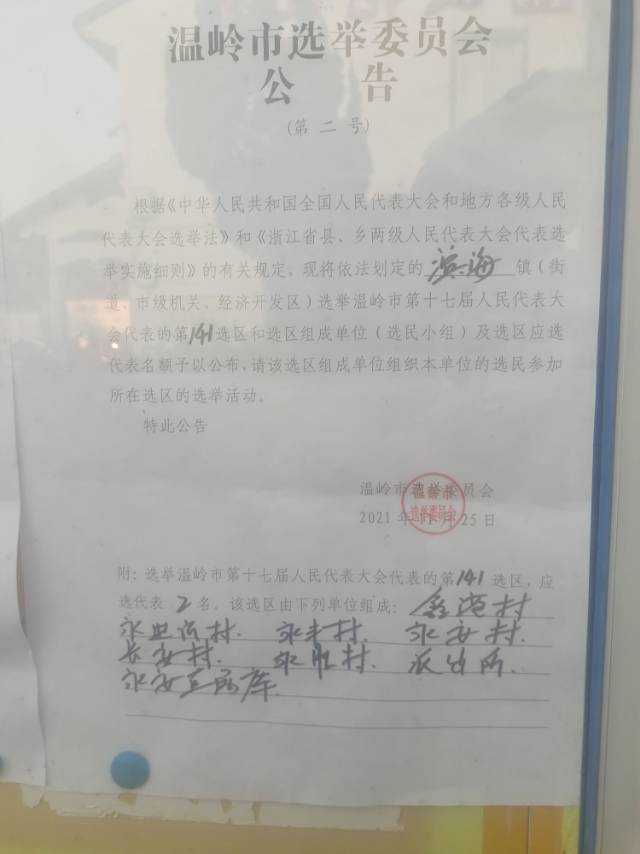 温岭市选举委员会
公 告
(第 二 号)
根据《中华人民共和国全国人民代表大会和地方各级人民
代表大会选举法》和《浙江省县、乡两级人民代表大会代表选
举实施细则》的有关规定,现将依法划定的 滨海 镇(街
道、市级机关、经济开发区)选举温岭市第十七届人民代表大
会代表的第141选区和选区组成单位(选民小组)及选区应选
代表名额予以公布,请该选区组成单位组织本单位的选民参加
所在选区的选举活动。
特此公告
温岭市选举委员会
温岭市
选举委员会
2021年11月25日
附:选举温岭市第十七届人民代表大会代表的第141选区,应
选代表 2 名,该选区由下列单位组成: 村
村. 永丰村. 永安村.
长安村. 永胜村. 派出所.
永安